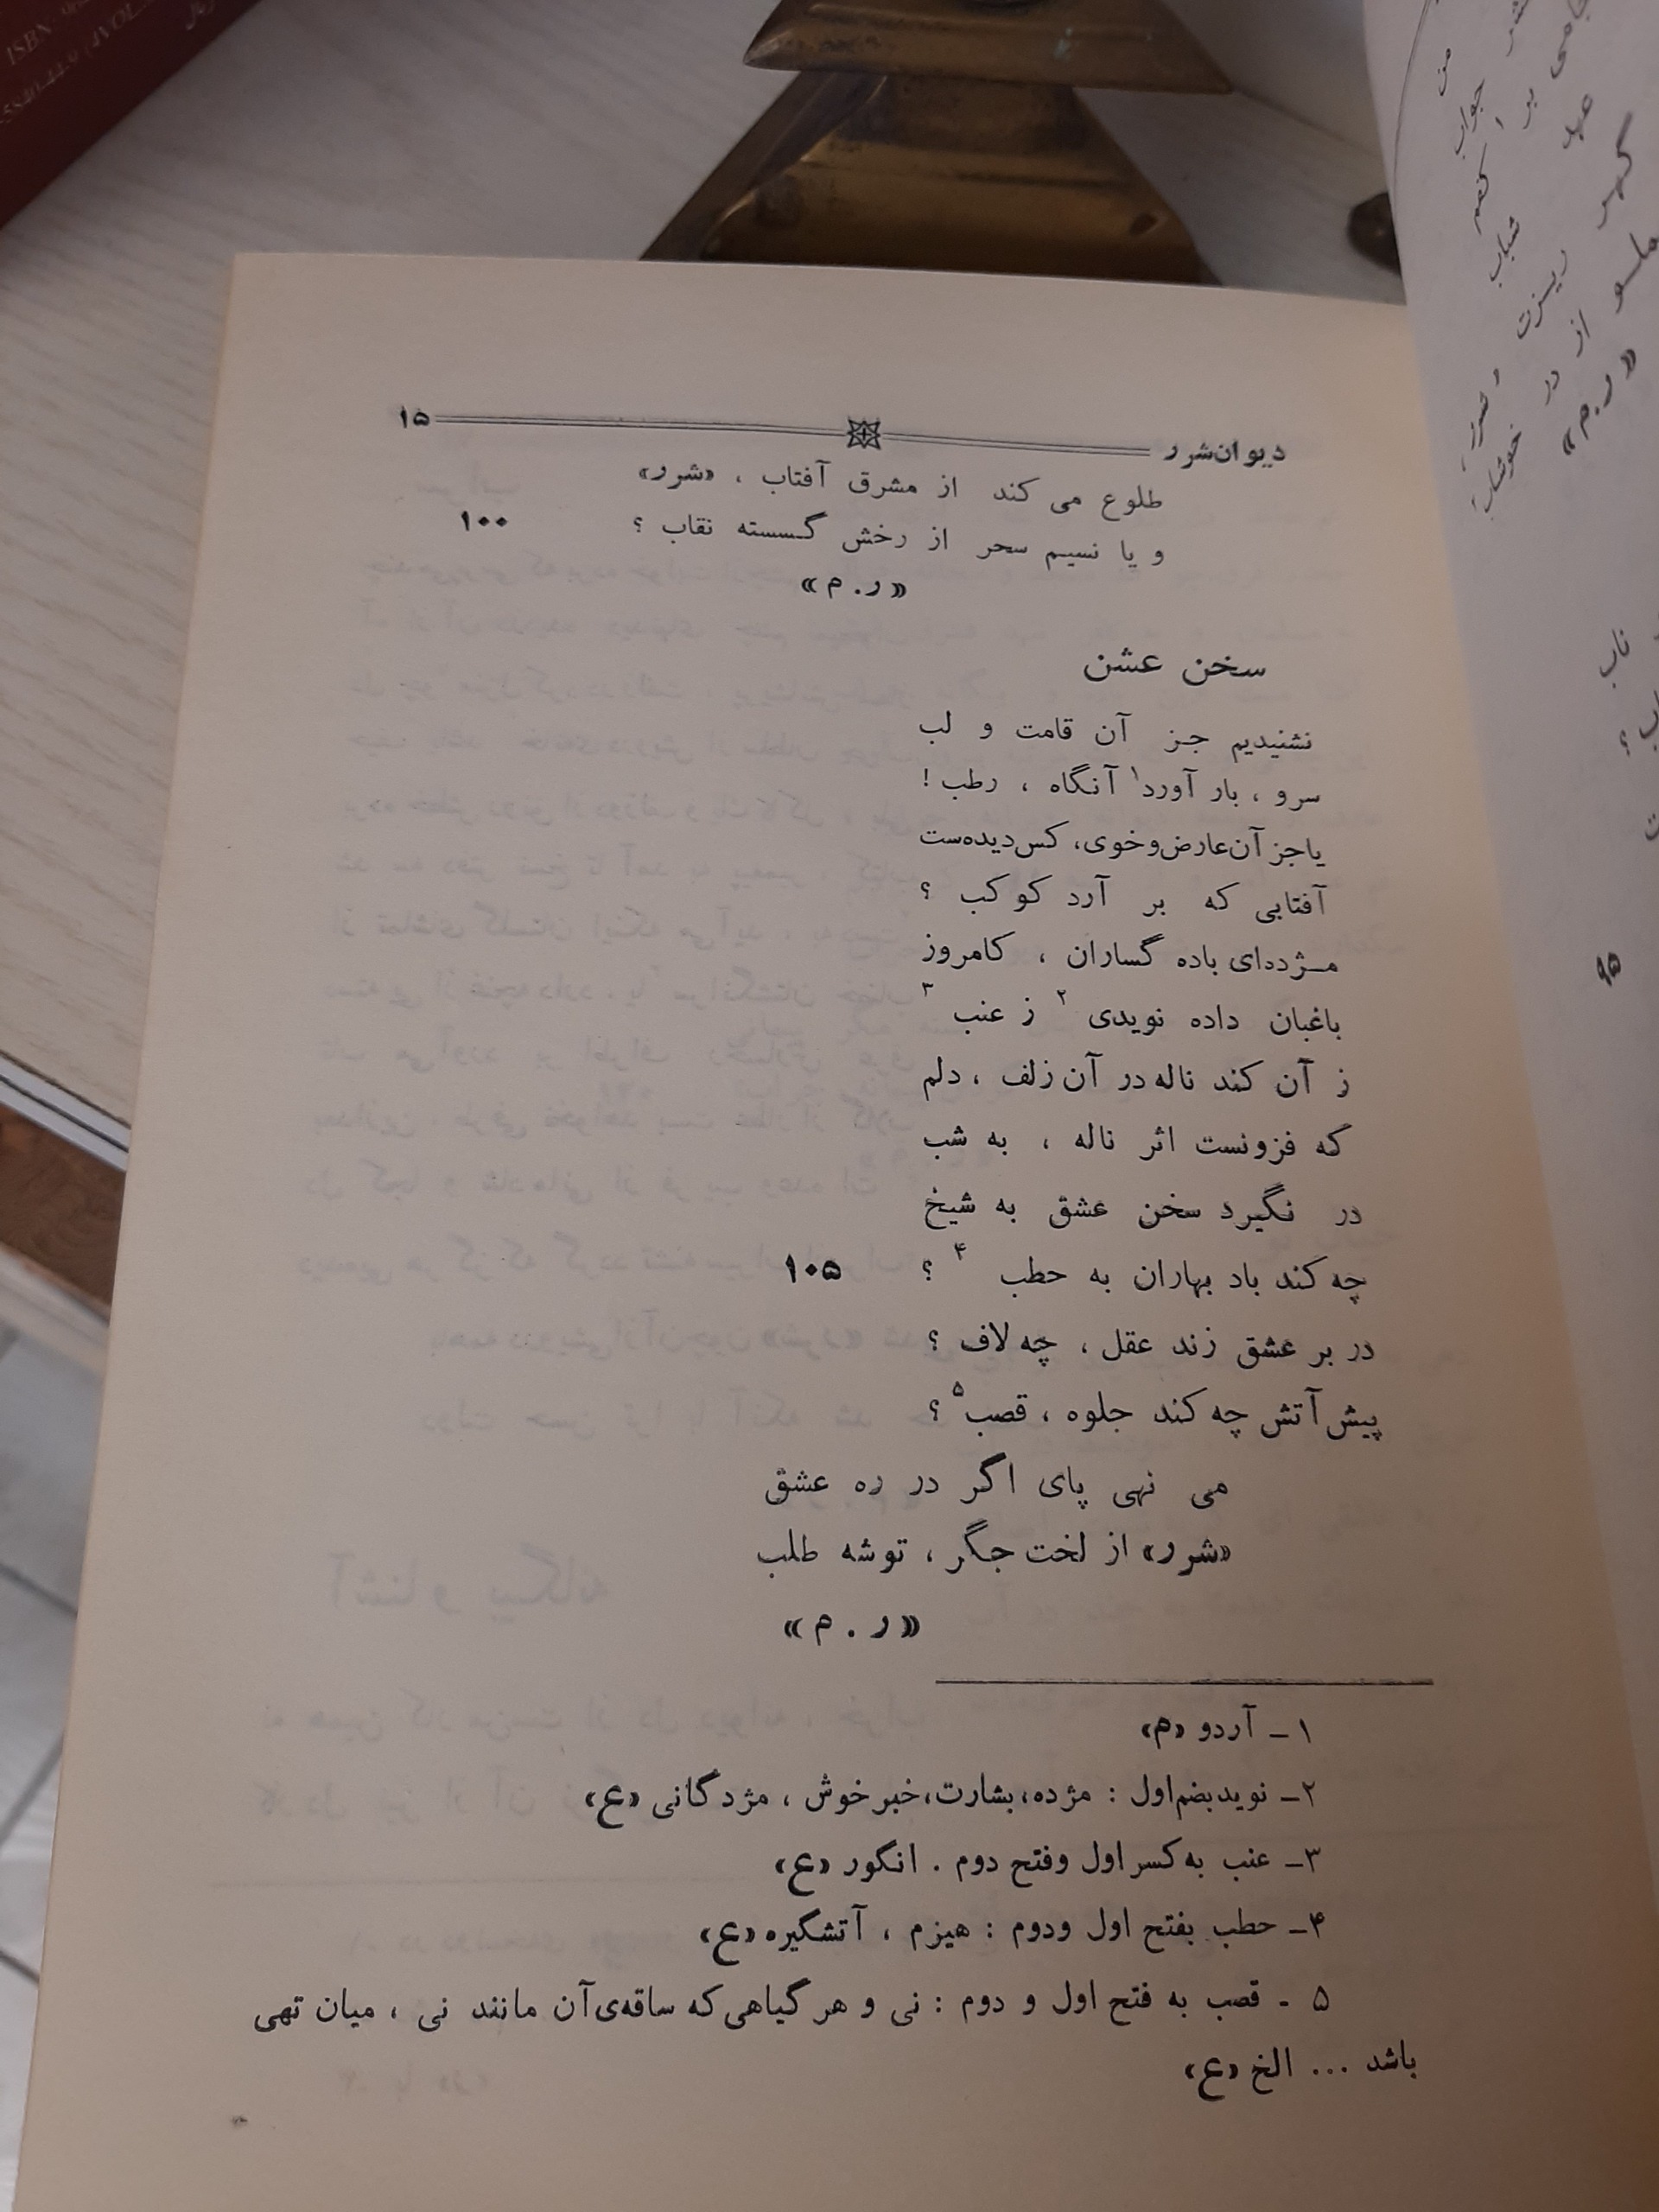 ISBN
دیوان شرر ۱۵
طلوع می کند از مشرق آفتاب ، «شرر»
و یا نسیم سحر از رخش گسسته نقاب ؟ ۱۰۰
«ر . م»
سخن عشن
نشنیدیم جز آن قامت و لب
سرو ، بار آورد۱ آنگاه ، رطب !
یاجز آن عارض و خوی، کس دیده‌ست
آفتابی که بر آرد کوکب ؟
مـژده‌ای باده گساران ، کامروز
باغبان داده نویدی ۲ ز عنب ۳
ز آن کند ناله در آن زلف ، دلم
که فزونست اثر ناله ، به شب
در نگیرد سخن عشق به شیخ
چه کند باد بهاران به حطب ۴ ؟ ۱۰۵
در بر عشق زند عقل ، چه لاف ؟
پیش آتش چه کند جلوه ، قصب۵ ؟
می نهی پای اگر در ره عشق
«شرر» از لخت جگر ، توشه طلب
«ر . م»
۱ــ آردو «م»
۲ــ نوید بضم اول : مژده، بشارت، خبر خوش ، مژدگانی «ع»
۳ــ عنب به کسر اول وفتح دوم . انگور «ع»
۴ــ حطب بفتح اول ودوم : هیزم ، آتشگیره «ع»
۵ - قصب به فتح اول و دوم : نی و هر گیاهی که ساقه‌ی آن مانند نی ، میان تهی
باشد ... الخ «ع»
من
جواب
کنم
شباب
ریزت
از در
«ر.م»
ناب
۹۵